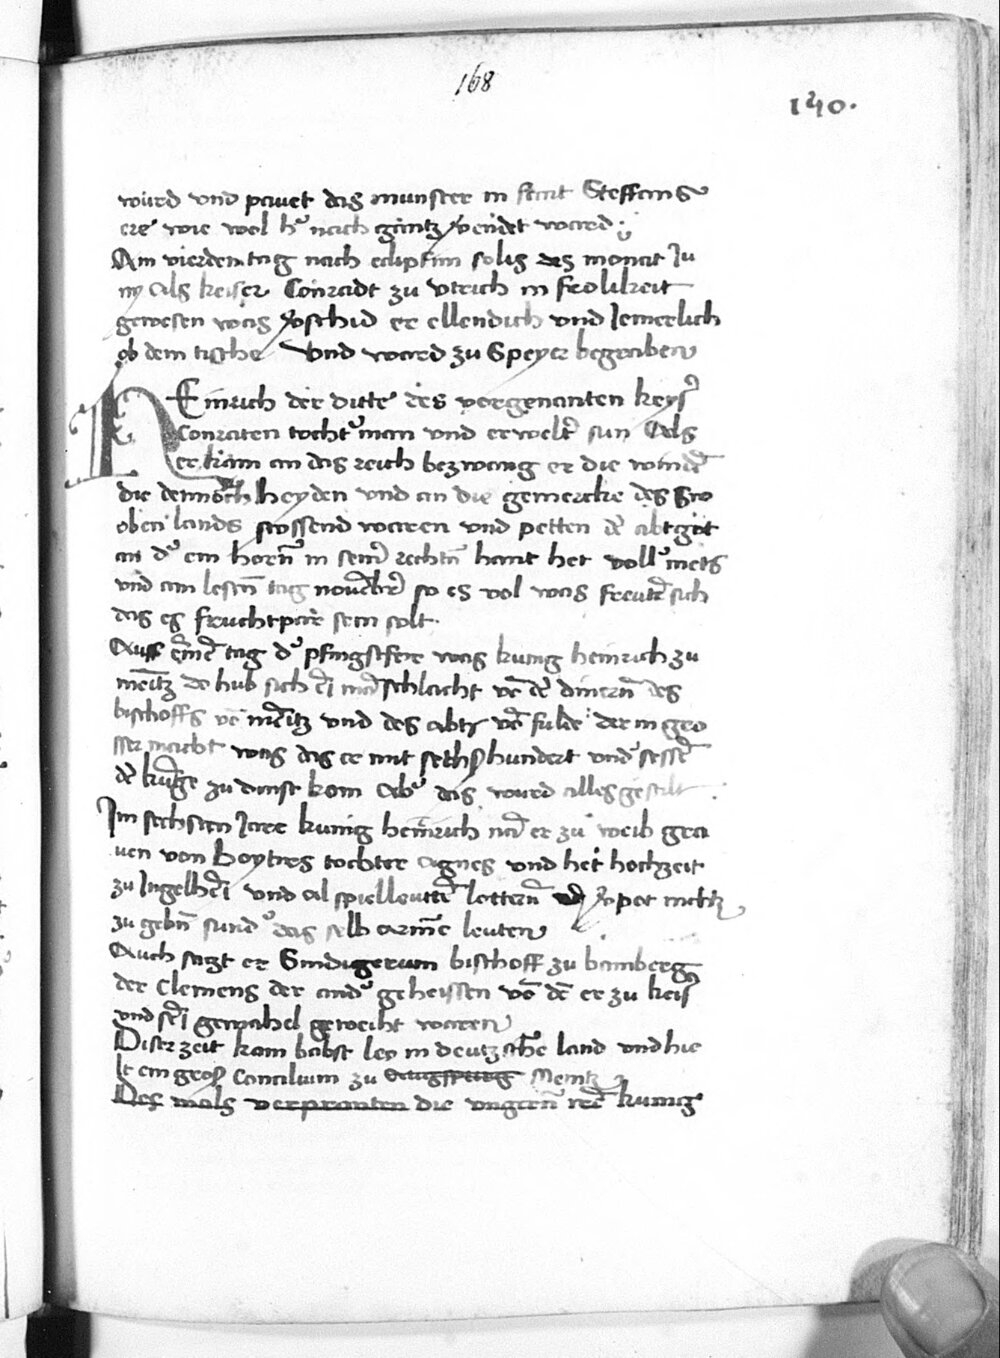 168
140.
wird vnd pawet das munster in sant Steffans
ere wie wol hͨ nach gantz vendet ward
Am vierden tag nach eclipsim solis des monat Ju
ny Als keiser Conradt zu vtrich in frolikeit
gewesen was vschid er ellendich vnd Jemerlich
ob dem tische vnd ward zu Speyer begraben
HEinrich der ditte des vorgenanten keys
Conraten tochtͨman vnd erwelt sun Als
er kam an das reich bezwang er die wind
die dennoch heyden vnd an die gemercke des Sw
oben lands stossend waren vnd petten de abtgot
an dͨ ein horn in sein rechtn hant het voll mets
vnd am lestn tag nouēber so es vol was freutē sich
das es fruchtpar sein solt.
Auff eine tag dͨ pfingstfeir was kunig heinrich zu
meītz do hub sich eī schlacht vō dē dinern des
bischoffs vō mēitz vnd des abts vō fulde der in gro
sser macht was das er mit sechshundert vnd
dē kunge zu dinst kom Abͨ das wurd alles gestilt
Im sechsten Jare kunig heinrich nā er zu weib gra
uen von Boytirs tochter Agnes vnd het hochzeit
zu Ingelheī vnd al spielleuttē lottern vpot nichtz
zu gebn sundͨ das selb armē leuten
Auch saczt er Sindigerum bischoff zu bamberg
der Clemens der andͨ geheissen vō dē er zu keis
vnd seī gemahel geweiht waren
Diser zeit kam babst leo in deutzsche land vnd hie
lt ein groß Concilium zu Augspurg Mentz
Des mals verpranten die vngern irē kunig